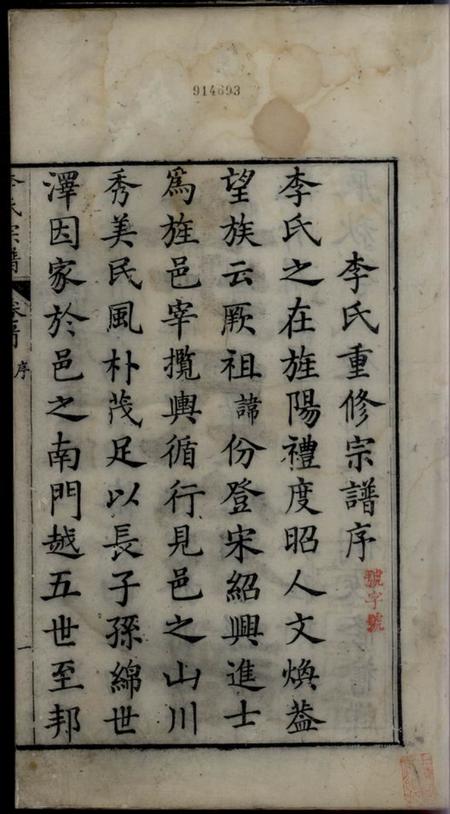 914693
李氏重修宗譜序
號字號
李氏之在旌陽禮度昭人文煥蓋
望族云厥祖諱份登宋紹興進士
爲旌邑宰攬輿循行見邑之山川
秀美民風朴茂足以長子孫綿世
澤因家於邑之南門越五世至邦
李氏宗譜 卷首 序 一